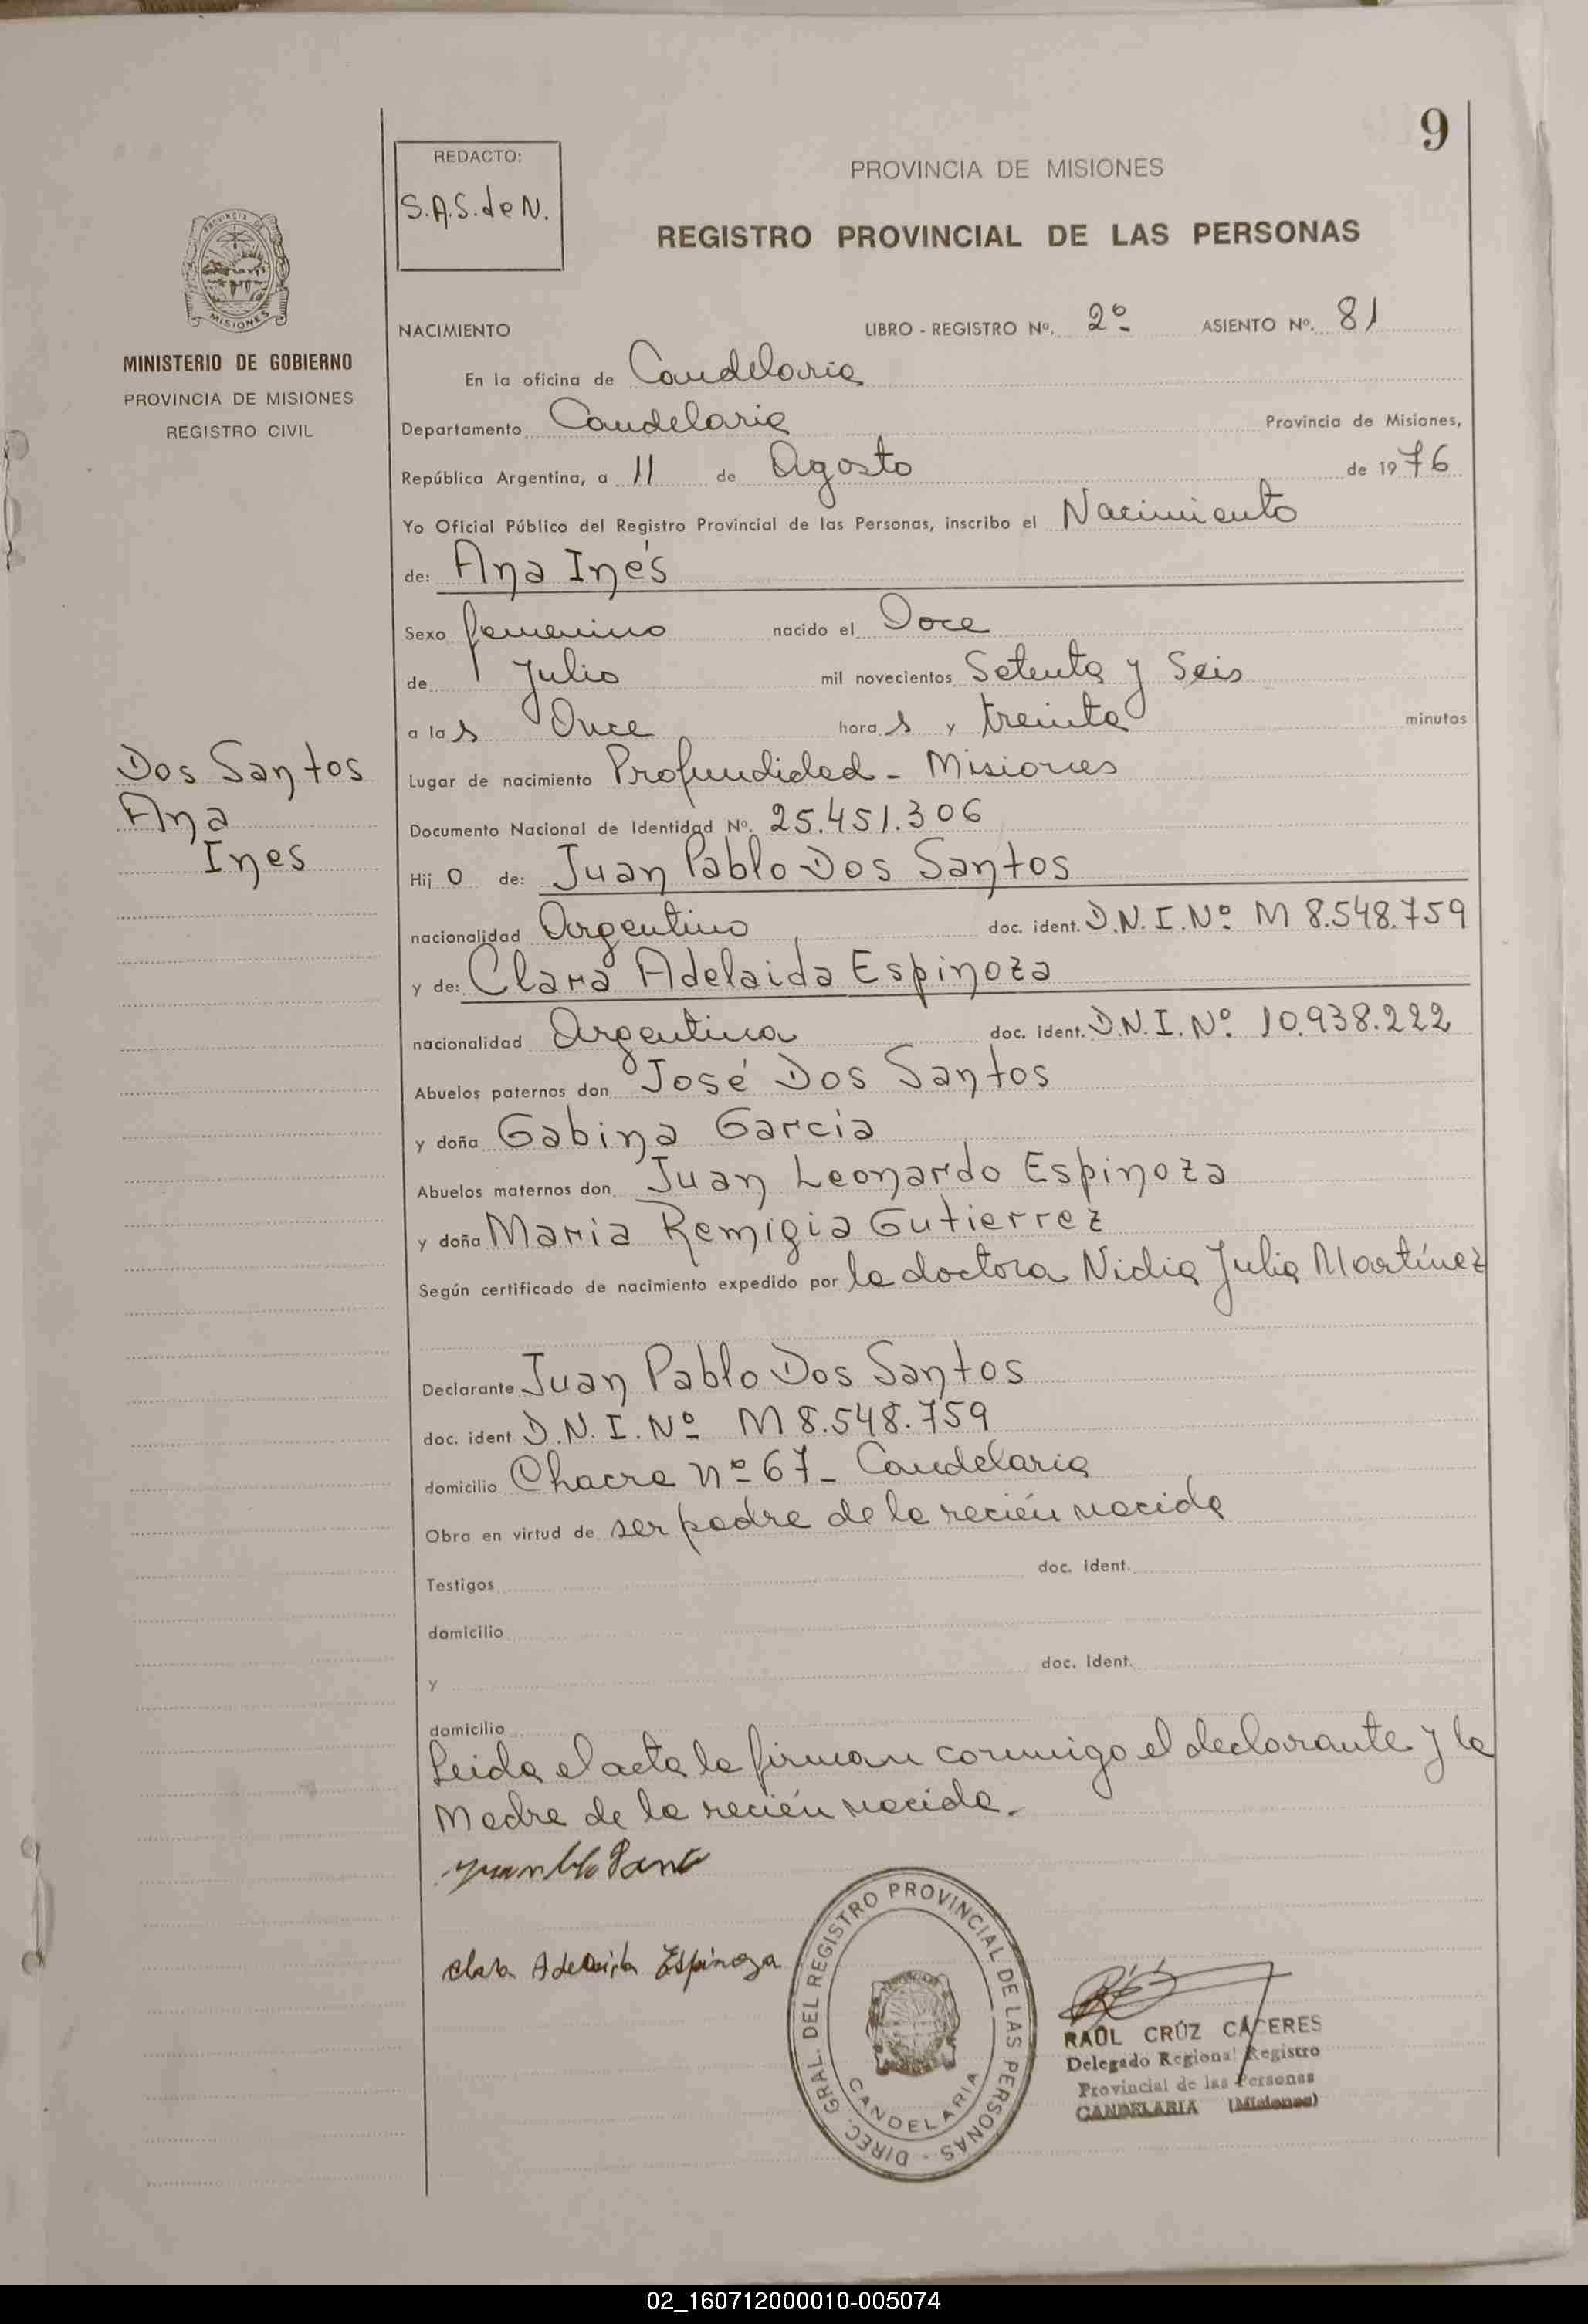 9
REDACTO:
S.A.S. de N.
PROVINCIA DE MISIONES
REGISTRO PROVINCIAL DE LAS PERSONAS
PROVINCIA DE
MISIONES
MINISTERIO DE GOBIERNO
PROVINCIA DE MISIONES
REGISTRO CIVIL
NACIMIENTO LIBRO - REGISTRO Nº. 2º ASIENTO Nº. 81
En la oficina de Candelaria
Departamento Candelaria Provincia de Misiones,
República Argentina, a 11 de Agosto de 1976
Yo Oficial Público del Registro Provincial de las Personas, inscribo el Nacimiento
de: Ana Inés
Sexo femenino nacido el Doce
de Julio mil novecientos Setenta y Seis
a las Once horas y treinta minutos
Dos Santos
Ana
Ines
Lugar de nacimiento Profundidad - Misiones
Documento Nacional de Identidad Nº. 25.451.306
Hijo de: Juan Pablo Dos Santos
nacionalidad Argentino doc. ident. D.N.I.Nº M 8.548.759
y de: Clara Adelaida Espinoza
nacionalidad Argentina doc. ident. D.N.I.Nº 10.938.222
Abuelos paternos don José Dos Santos
y doña Gabina Garcia
Abuelos maternos don Juan Leonardo Espinoza
y doña Maria Remigia Gutierrez
Según certificado de nacimiento expedido por la doctora Nidia Julia Martínez
Declarante Juan Pablo Dos Santos
doc. ident D.N.I.Nº M 8.548.759
domicilio Chacra nº 67 - Candelaria
Obra en virtud de ser padre de la recién nacida
Testigos doc. ident.
domicilio
y doc. ident.
domicilio
Leida el acta la firman conmigo el declarante y la
Madre de la recién nacida.
Clara Adelaida Espinoza
DIREC. GRAL. DEL REGISTRO PROVINCIAL DE LAS PERSONAS -
CANDELARIA
RAÚL CRÚZ CÁCERES
Delegado Regional Registro
Provincial de las Personas
CANDELARIA (Misiones)
02_160712000010-005074